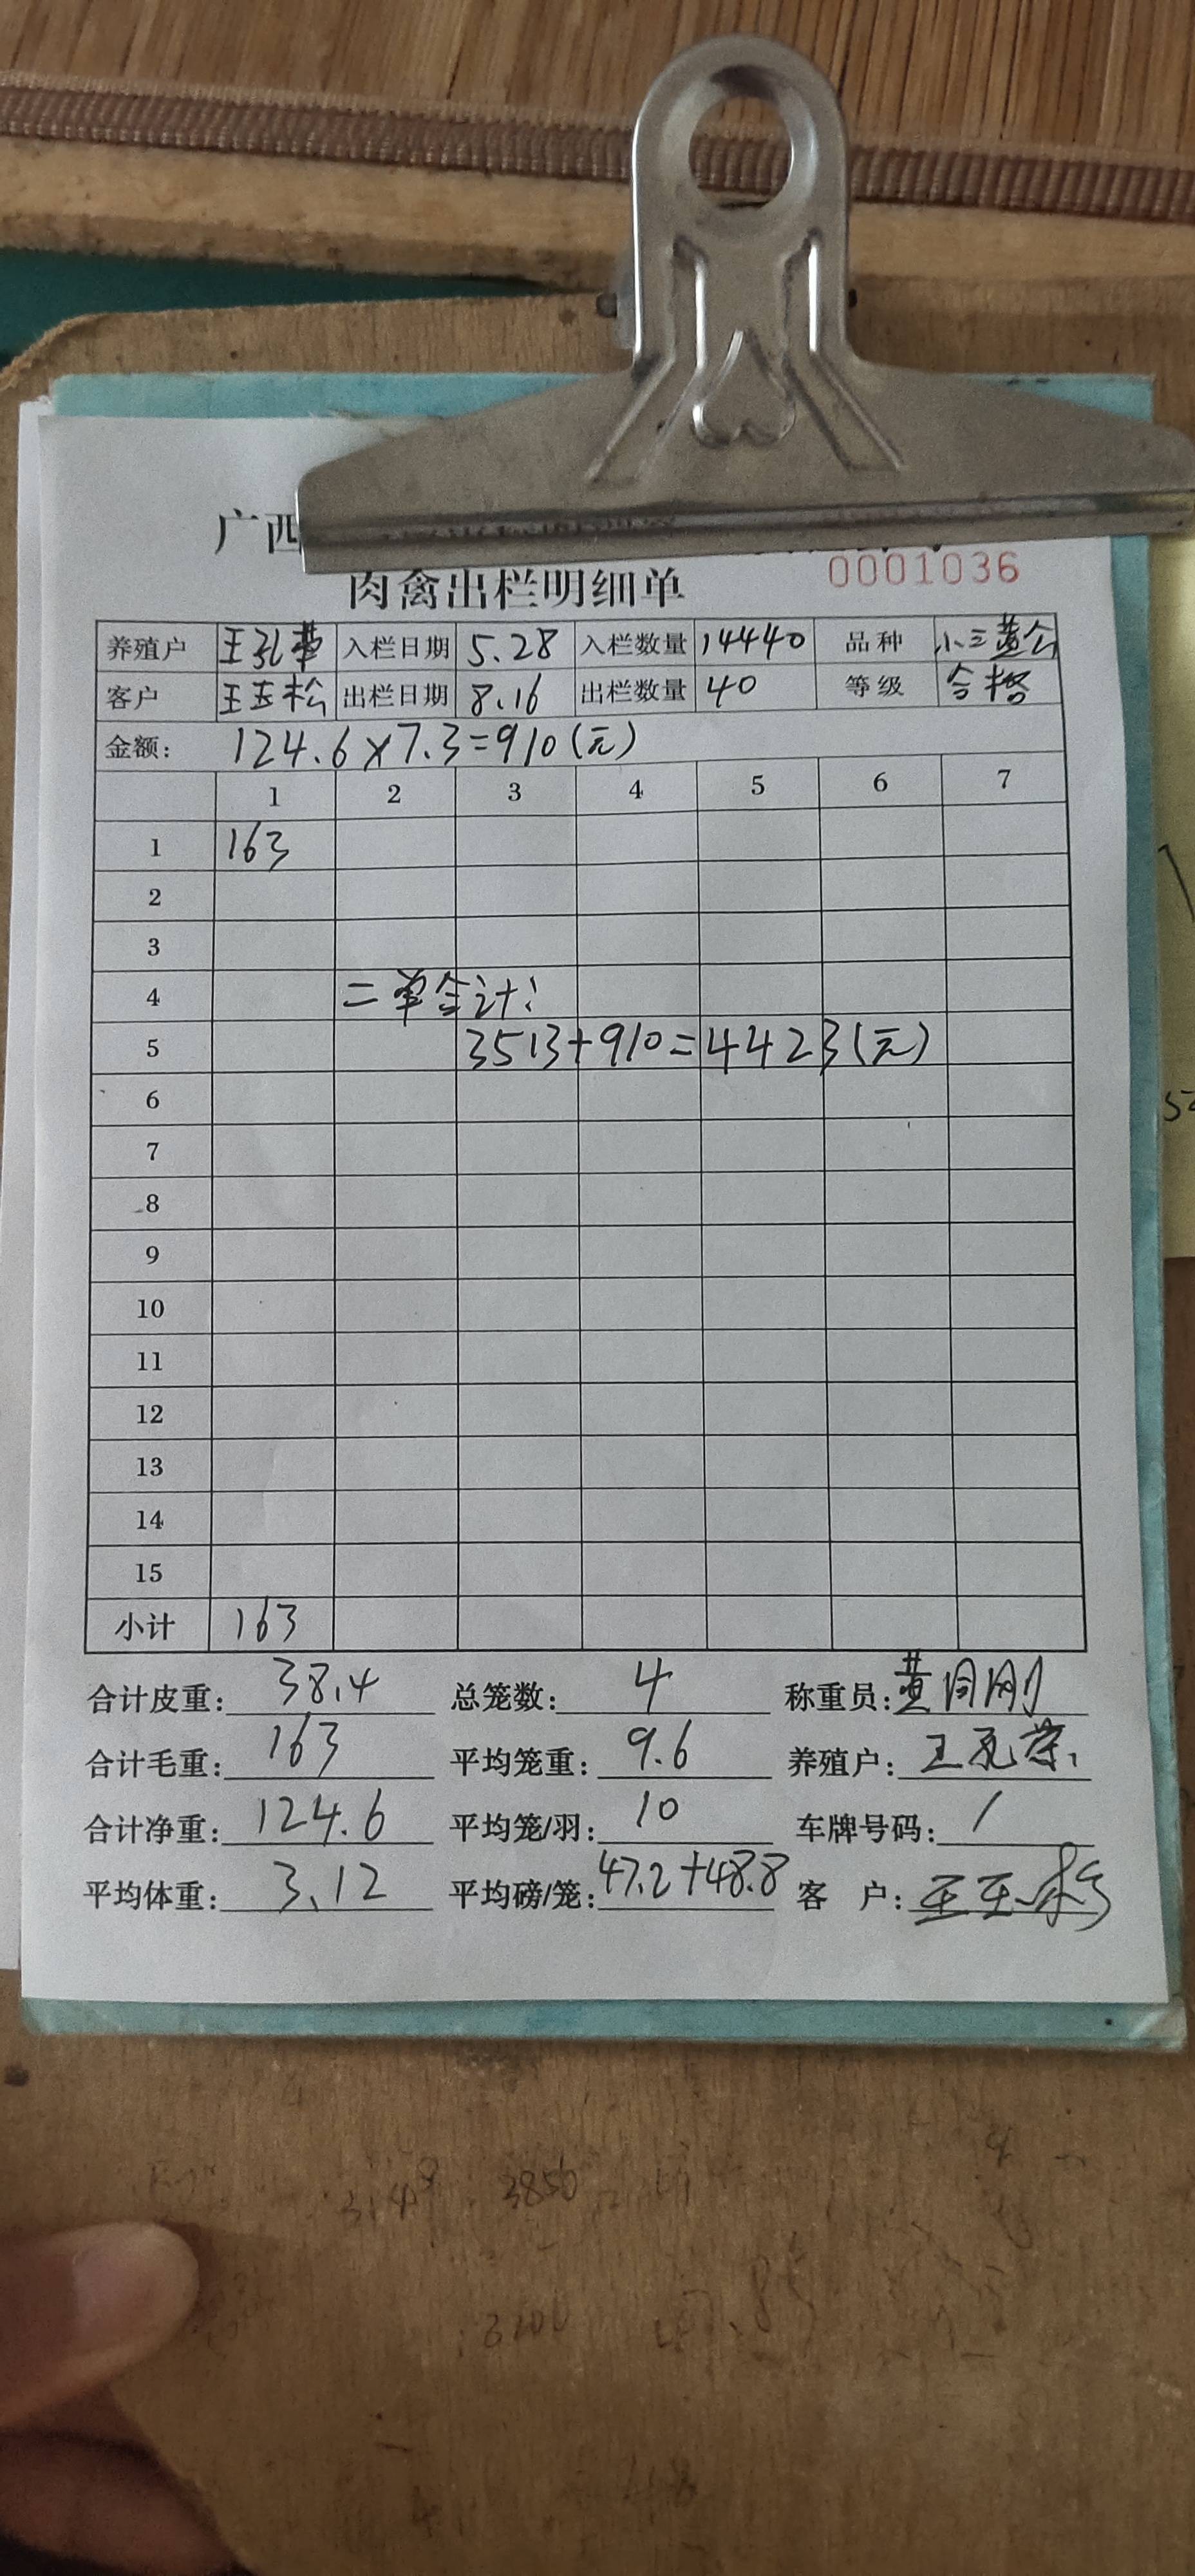 广西
0001036
肉禽出栏明细单
养殖户 王孔荣 入栏日期 5.28 入栏数量 14440 品种 小三黄公
客户 王玉松 出栏日期 8.16 出栏数量 40 等级 合格
金额： 124.6×7.3=910(元)
1 2 3 4 5 6 7
1 163
2
3
4 二单合计：
5 3513+910=4423(元)
6
7
8
9
10
11
12
13
14
15
小计 163
合计皮重： 38.4 总笼数： 4 称重员： 黄
合计毛重： 163 平均笼重： 9.6 养殖户： 王孔荣
合计净重： 124.6 平均笼/羽： 10 车牌号码： /
平均体重： 3.12 平均磅/笼： 47.2+48.8 客 户： 王玉松
3850